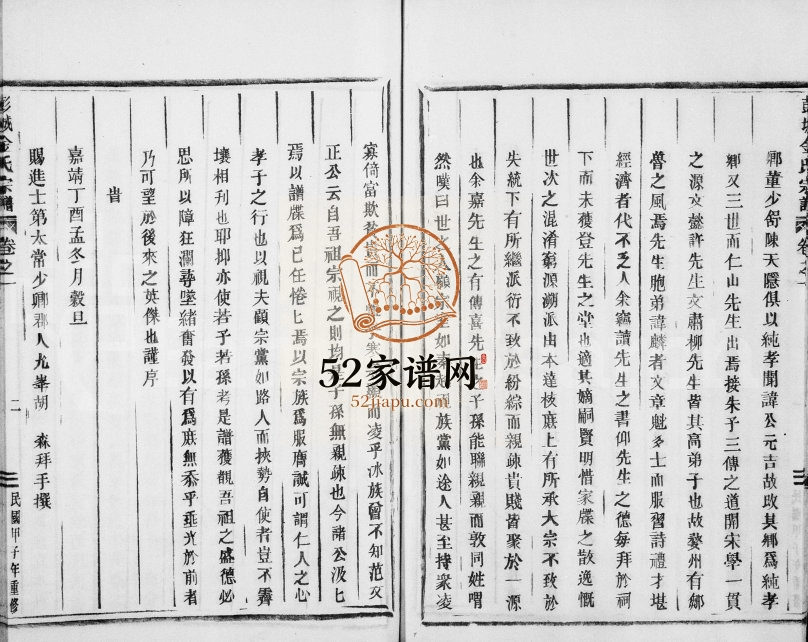 彭城金氏宗譜 卷之一
鄉董少舒陳天隱俱以純孝聞諱公元吉故改其鄉爲純孝
鄉又三世而仁山先生出焉接朱子三傳之道開宋學一貫
之源文懿許先生文肅柳先生皆其高弟子也故婺州有鄒
魯之風焉先生胞弟諱麟者文章魁多士而服習詩禮才堪
經濟者代不乏人余竊讀先生之書仰先生之德每拜於祠
下而未獲登先生之堂也適其嫡嗣賢明惜家牒之散逸慨
世次之混淆窮源溯派由本達枝庶上有所承大宗不致於
失統下有所繼派衍不致於紛綜而親疎貴賤皆聚於一源
也余嘉先生之有傳喜先生之子孫能聯親親而敦同姓喟
然嘆曰世之人顧宗 如秦越視族黨如途人甚至持衆凌
寡倚富欺 而不 寒 而凌乎冰族曾不知范文
正公云自吾祖宗視之則均是子孫無親疎也今諸公汲匕
焉以譜牒爲己任惓匕焉以宗族爲服膺誠可謂仁人之心
孝子之行也以視夫顧宗黨如路人而挾勢自使者豈不霄
壤相判也耶抑亦使若子若孫考是譜獲觀吾祖之盛德必
思所以障狂瀾尋墜緒奮發以有爲庶無忝乎垂光於前者
乃可望於後來之英傑也謹序
旹
嘉靖丁酉孟冬月穀旦
賜進士第太常少卿郡人九峯胡 森拜手撰
彭城金氏宗譜 卷之一 二 民國甲子年重修
52家谱网
52jiapu.com